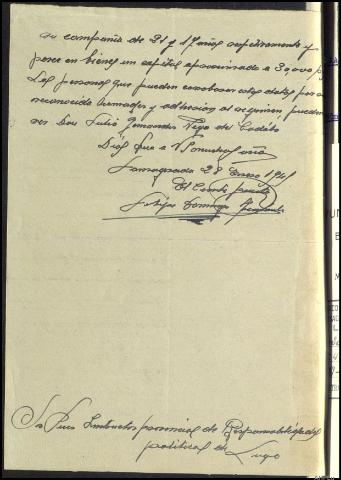 su compañia de 21 y 17 años respectivamente y
posee en bienes un capital aproximado a 30,000 pts
Las personas que pueden corroborar estos datos por su
reconocida honradez y adhesion al regimen pueden
ser Don Julio Fernandez Vega de Cadebo
Dios gue a V S muchos años
Fonsagrada 28 Enero 1941
El Comte puesto
Felipe Domingo
Sr Juez Instructor provincial de Responsabilidades
politicas de Lugo